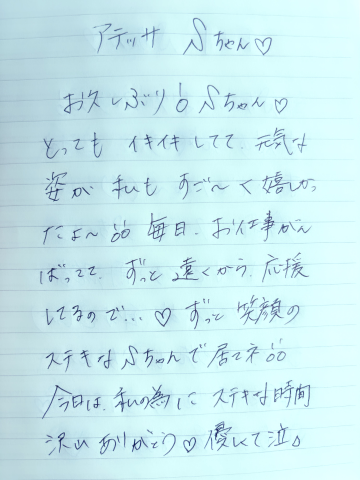 アテッサ Sちゃん♡
お久しぶり!! Sちゃん♡
とっても イキイキしてて、元気な
姿が 私も すご〜く嬉しかっ
たよ〜!! 毎日、お仕事がん
ばってて、ずっと 遠くから、応援
してるので...♡ ずっと 笑顔の
ステキなSちゃんで居てネ!!
今日は、私の為に ステキな時間
沢山 ありがとう♡ 優しくて泣。